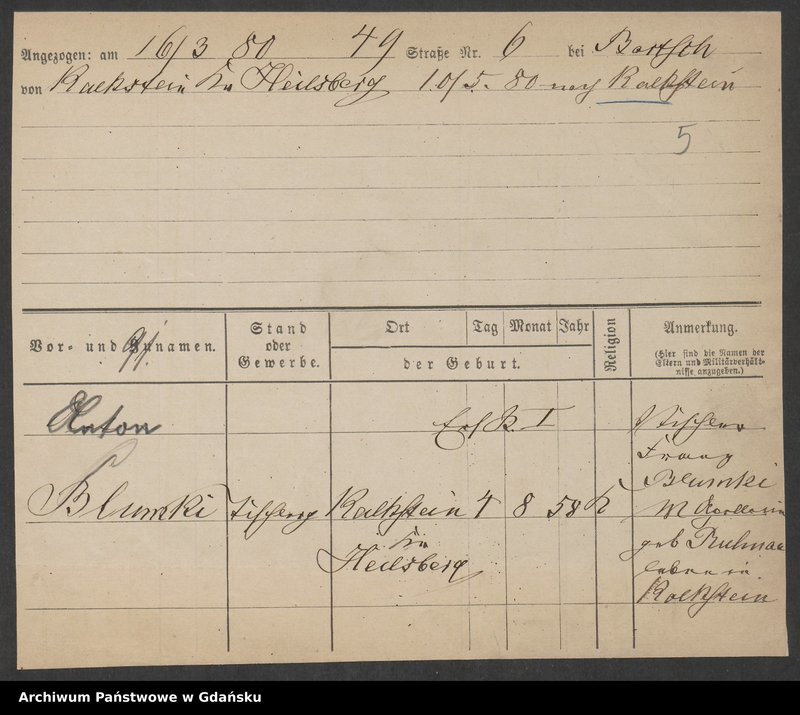 Angezogen: am 16/3 80 49 Straße Nr. 6 bei Bartsch
von Kalkstein Kr Heilsberg 10/5. 80 nach Kalkstein
5
Vor- und Zunamen.
Stand
oder
Gewerbe.
Ort Tag Monat Jahr
der Geburt.
Religion
Anmerkung.
(Hier sind die Namen der
Eltern und Militärverhält-
nisse anzugeben.)
Anton
Ers. R. I
Tischler
Franz
Blumki Tischlerg Kalkstein 4 8 58 K
Blumki
Kr
Heilsberg
M Apollonia
geb
leben in
Kalkstein
Archiwum Państwowe w Gdańsku